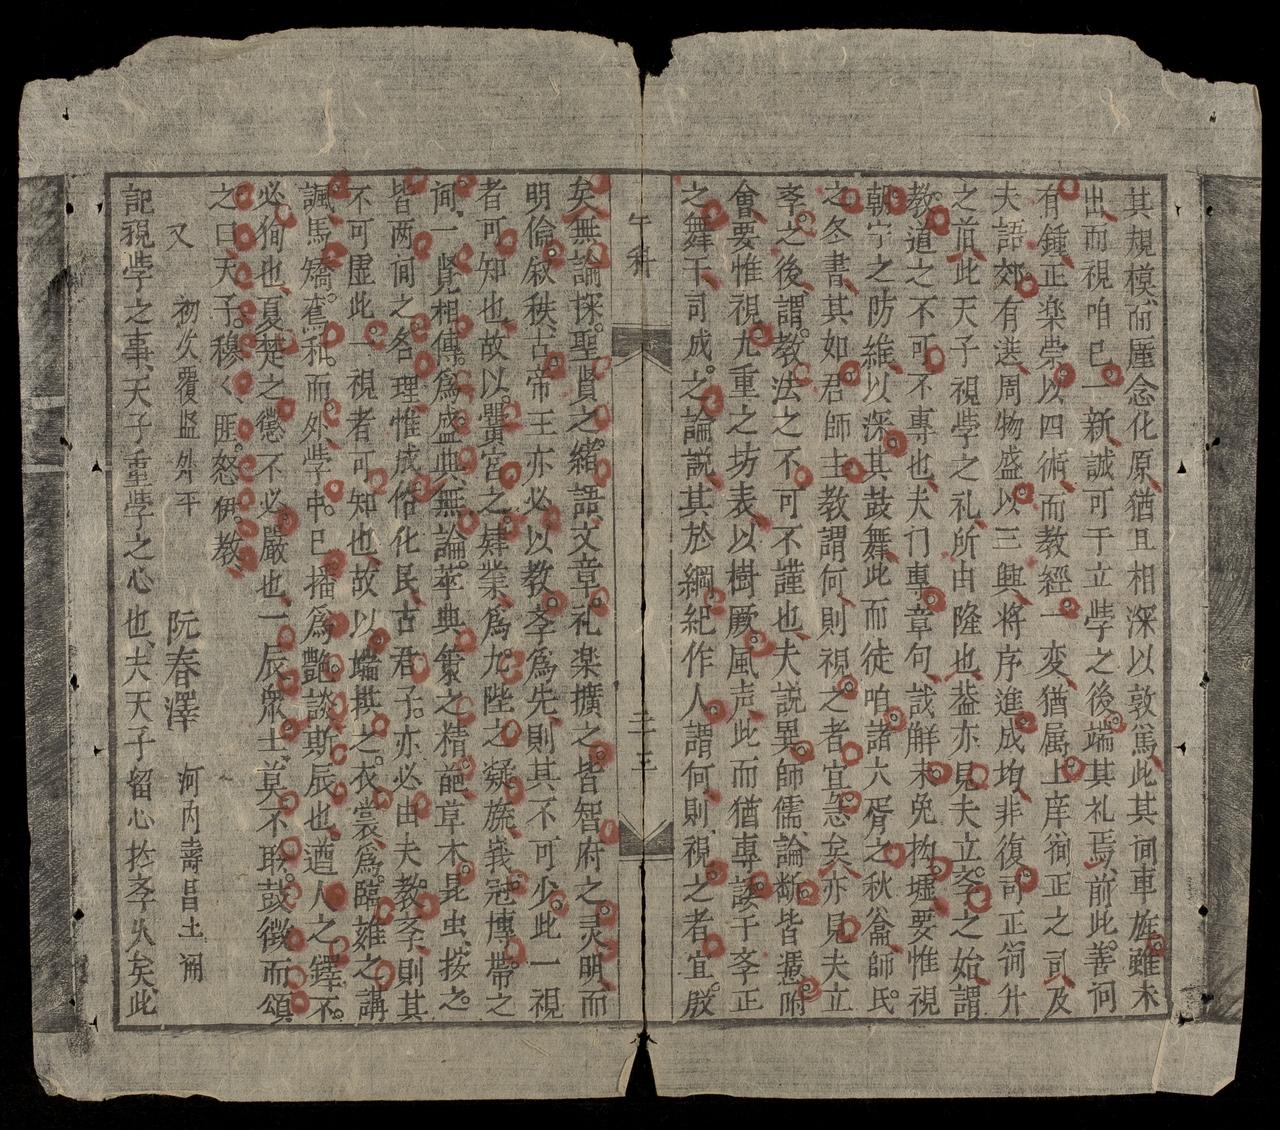 其規模而厪念化原猶且相深以敦篤此其间車旌雖未
出而視咱已一新誠可于立斈之後端其礼焉前此善祠
有鍾正楽崇以四術而教經一变猶属上庠徇正之司及
夫語郊有选周物盛以三興将序進成均非復可正嗣升
之前此天子視斈之礼所由隆也盖亦見夫立斈之始謂
教道之不可不專也夫门專章句哉解未免拘墟要惟視
朝宁之防維以深其鼓舞此而徒咱諸大胥之秋龠師氏
之冬書其如君師主教謂何則視之者宜悫矣亦見夫立
斈之後謂教法之不可不謹也夫説異師儒論断皆憑附
會要惟視九重之坊表以樹厥風声此而猶專諉于斈正
之舞干司成之論説其於綱紀作人謂何則視之者宜殷
午科
三十三
矣無論探聖贤之緒語文章礼楽擴之皆智府之灵明而
明倫叙秩古帝王亦必以教斈為先則其不可少此一視
者可知也故以黌宮之肄業為九陛之凝旒峩冠博帶之
间一覽相傳為盛典無論萃典策之精葩草木昆虫按之
皆两间之各理惟成俗化民古君子亦必由夫教斈則其
不可虛此一視者可知也故以端拱之衣裳為臨雍之講
諷馬矯鴦和而外斈中已播為艶談斯辰也遒人之鐸不
必徇也夏楚之懲不必嚴也一辰衆士莫不聆鼓徵而頌
之曰天子穆〻匪怒伊教
又 初次覆监外平 阮春澤 河内壽昌土
記視斈之事天子重斈之心也夫天子留心於斈久矣此